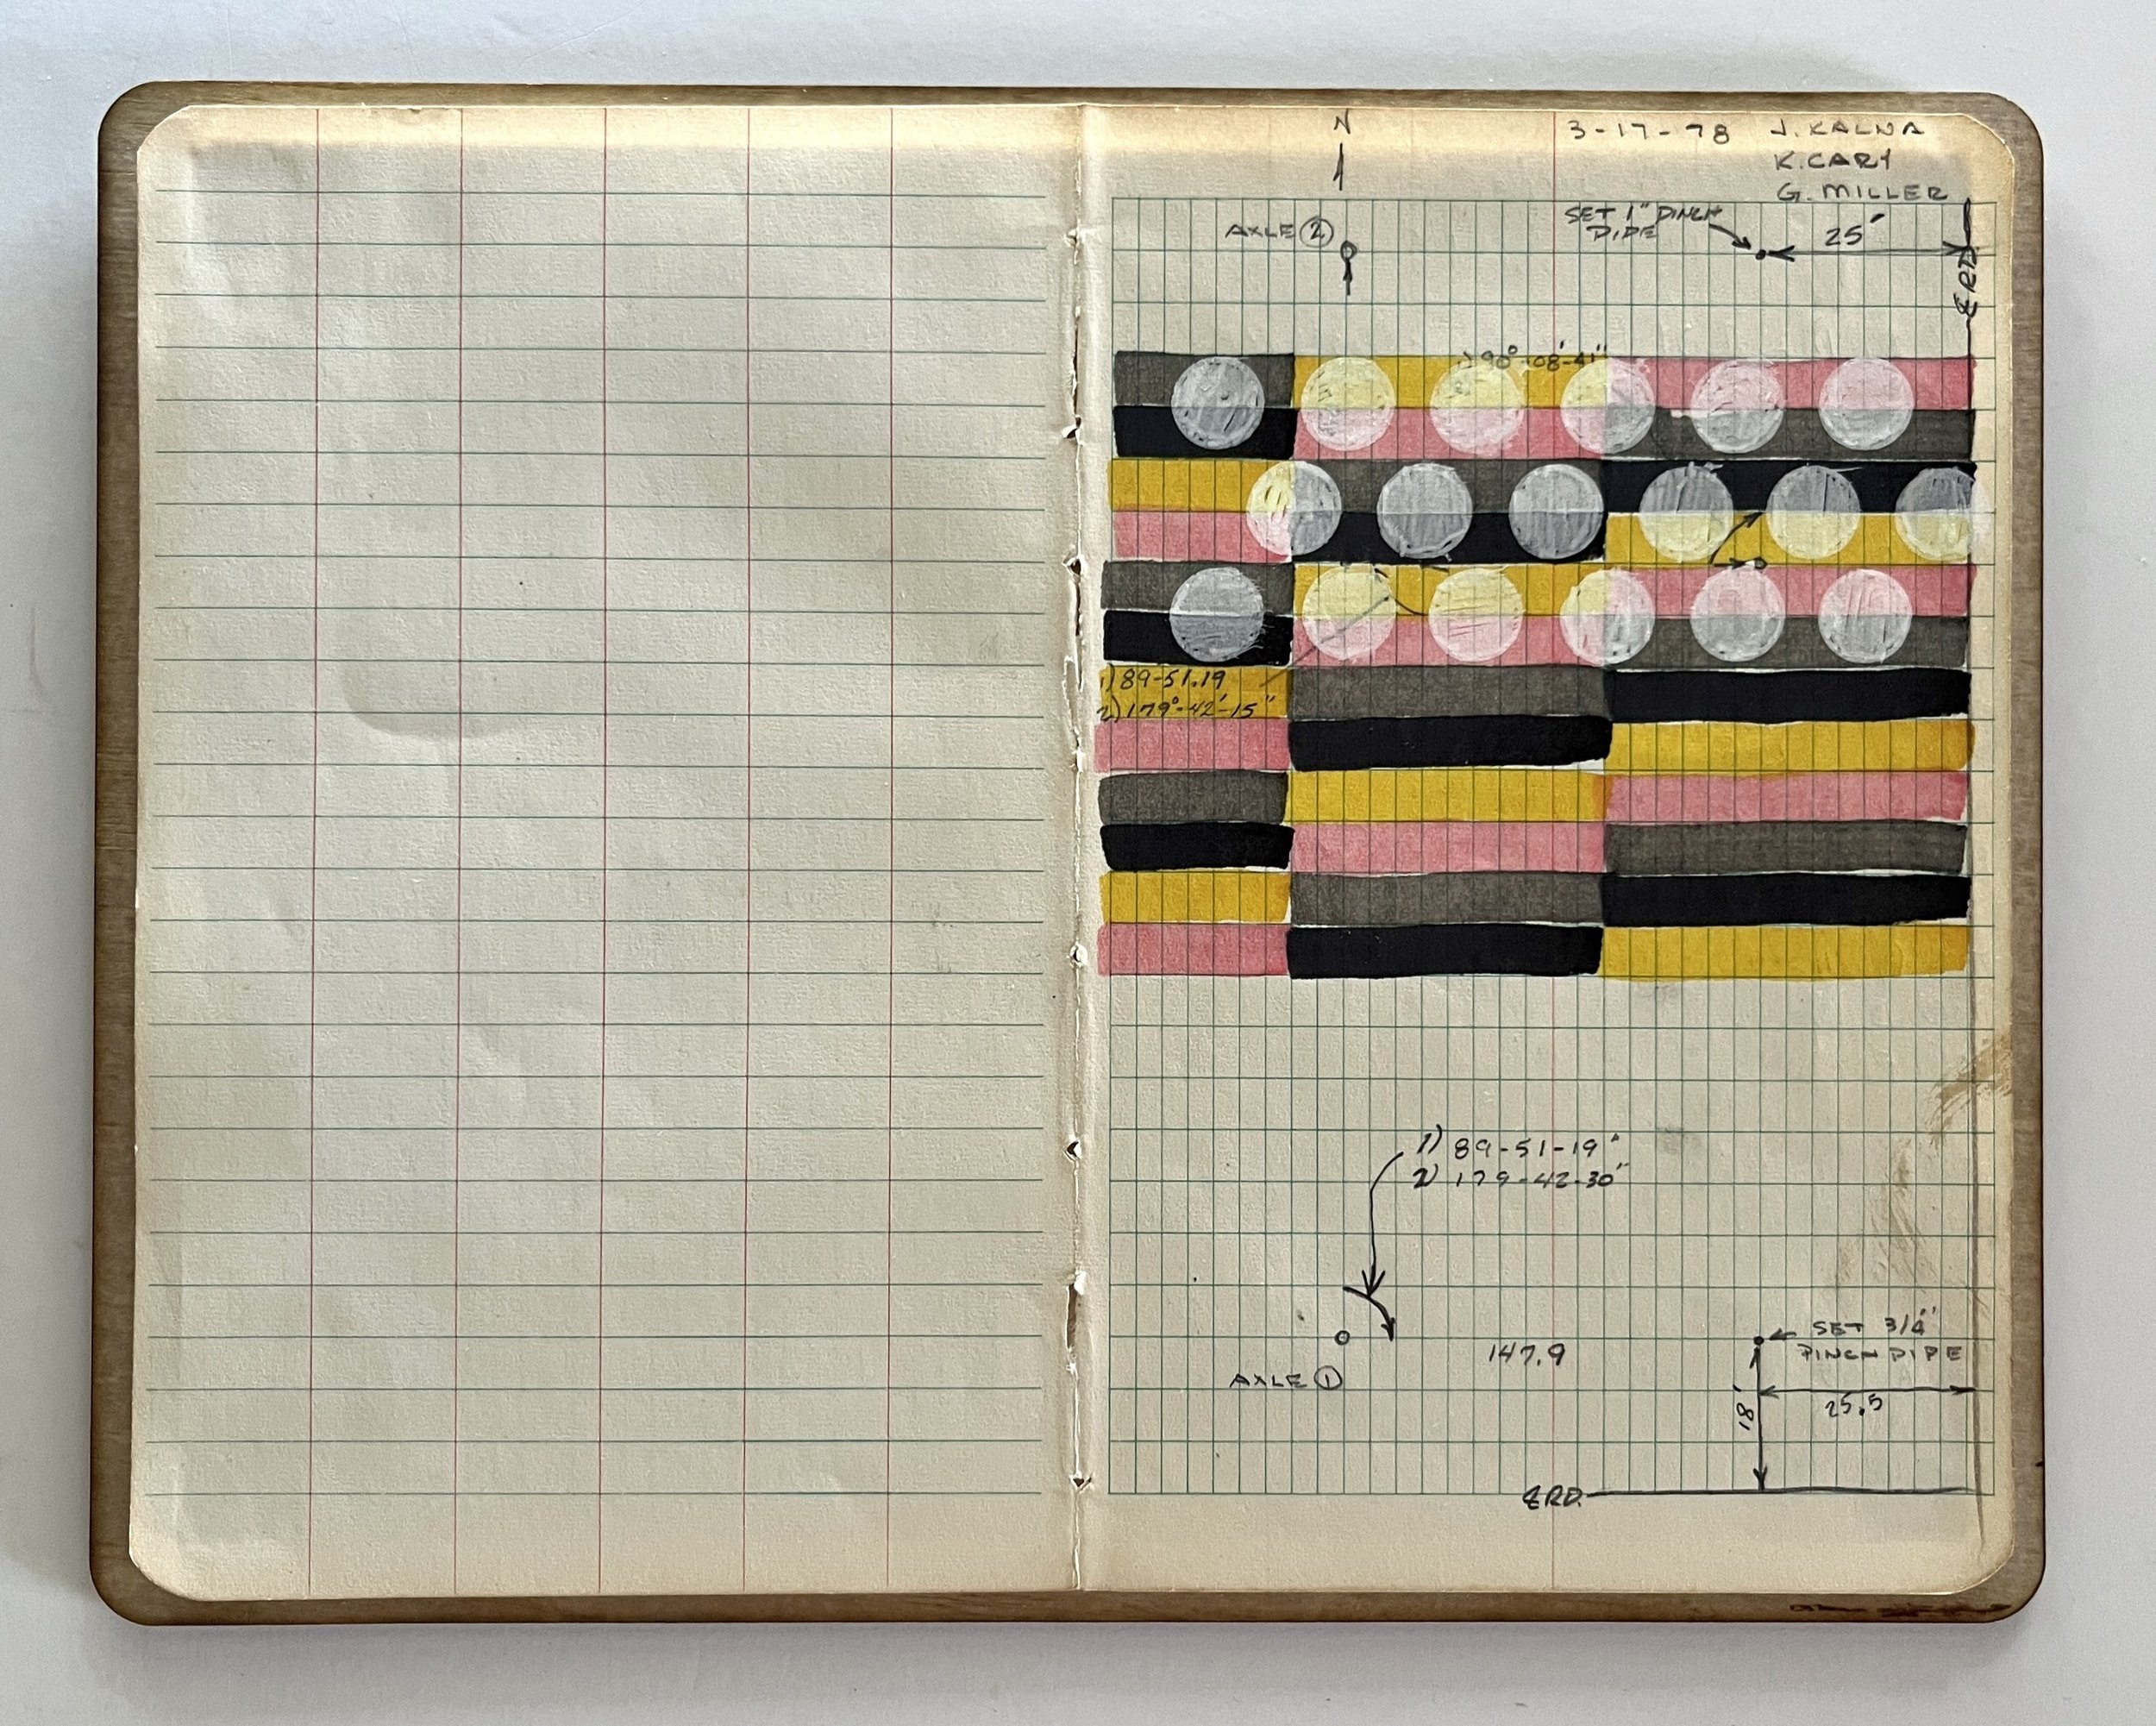 N
3-17-78 J. KALNA
K. CARY
G. MILLER
SET 1" PINCH
PIPE
25'
AXLE 2
℄ RD.
90°-08'-41"
1) 89-51.19
2) 179°-42'-15"
1) 89-51-19"
2) 179-42-30"
SET 3/4"
PINCH PIPE
147.9
AXLE 1
18'
25.5
℄ RD.